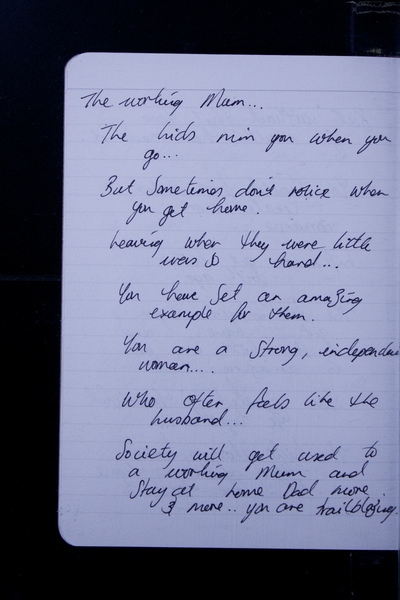 The working Mum...
The kids miss you when you
go...
But sometimes don't notice when
you get home.
Leaving when they were little
was so hard...
You have set an amazing
example for them.
You are a strong, independent
woman....
Who often feels like the
husband...
Society will get used to
a working Mum and
stay at home Dad more
& more.. you are trailblazing.